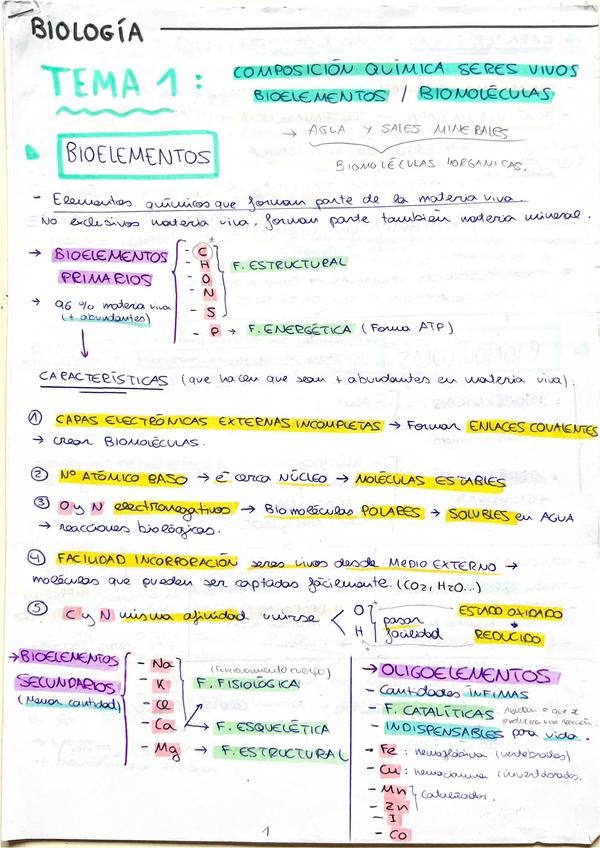 BIOLOGÍA
TEMA 1:
COMPOSICIÓN QUÍMICA SERES VIVOS
BIOELEMENTOS / BIOMOLÉCULAS
→ AGUA Y SALES MINERALES
BIOMOLÉCULAS INORGANICAS.
BIOELEMENTOS
- Elementos químicos que forman parte de la materia viva.
No exclusivos materia viva, forman parte también materia mineral.
→ BIOELEMENTOS PRIMARIOS
- C
- H
- O
- N
- S
F. ESTRUCTURAL
- P → F. ENERGÉTICA (Forma ATP)
→ 96% materia viva
(+ abundantes)
CARACTERÍSTICAS (que hacen que sean + abundantes en materia viva).
① CAPAS ELECTRÓNICAS EXTERNAS INCOMPLETAS → Forman ENLACES COVALENTES
→ crear BIOMOLÉCULAS.
② Nº ATÓMICO BAJO → é cerca NÚCLEO → MOLÉCULAS ESTABLES
③ O y N electronegativos → Biomoléculas POLARES → SOLUBLES en AGUA
→ reacciones biológicas.
④ FACILIDAD INCORPORACIÓN seres vivos desde MEDIO EXTERNO →
moléculas que pueden ser captadas fácilmente. (CO2, H2O...)
⑤ C y N misma afinidad unirse < O H } pasar facilidad
ESTADO OXIDADO
REDUCIDO
→ BIOELEMENTOS
SECUNDARIOS
(Menor cantidad)
- Na
- K
- Cl
- Ca
- Mg → F. ESTRUCTURAL
(Funcionamiento cuerpo)
F. FISIOLÓGICA
F. ESQUELÉTICA
→ OLIGOELEMENTOS
- Cantidades ÍNFIMAS
- F. CATALÍTICAS
- INDISPENSABLES para vida.
- Fe: hemoglobina (vertebrados)
- Cu: hemocianina (invertebrados.
- Mn
- Zn
Catalizador.
- I
- Co
1